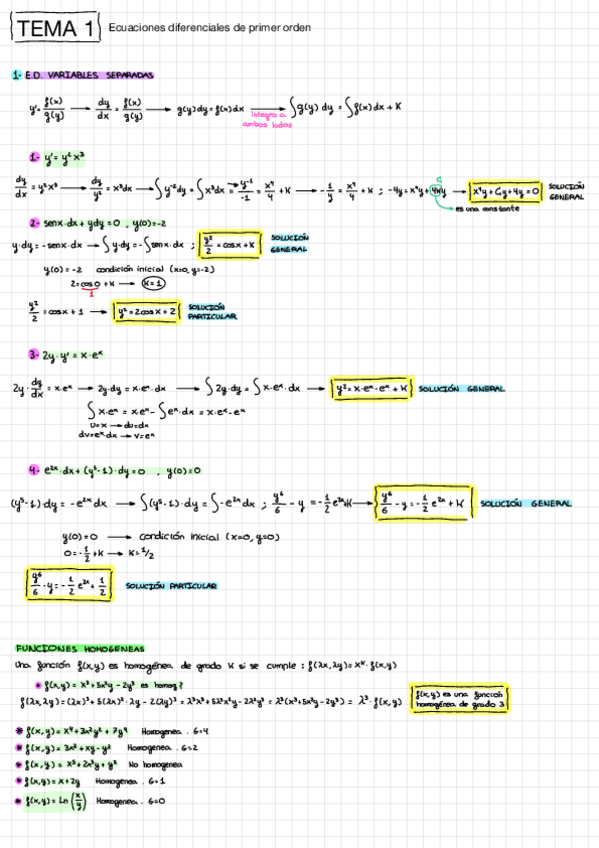 TEMA 1 Ecuaciones diferenciales de primer orden
1- E.D. VARIABLES SEPARADAS
y' = f(x)/g(y) → dy/dx = f(x)/g(y) → g(y)dy = f(x)dx → ∫g(y)dy = ∫f(x)dx + K
integro a
ambos lados
1- y' = y²x³
dy/dx = y²x³ → dy/y² = x³dx → ∫y⁻²dy = ∫x³dx → y⁻¹/-1 = x⁴/4 + K → -1/y = x⁴/4 + K ; -4y = x⁴y + 4Ky → x⁴y + Cy + 4y = 0 SOLUCIÓN GENERAL
C
es una constante
2- senx·dx + ydy = 0 , y(0) = -2
y·dy = -senx·dx → ∫y·dy = -∫senx·dx ; y²/2 = cosx + K SOLUCIÓN GENERAL
y(0) = -2 condición inicial (x=0, y=-2)
2 = cos0 + K → K = 1
1
y²/2 = cosx + 1 → y² = 2cosx + 2 SOLUCIÓN PARTICULAR
3- 2y·y' = x·eˣ
2y·dy/dx = x·eˣ → 2y·dy = x·eˣ·dx → ∫2y·dy = ∫x·eˣ·dx → y² = x·eˣ - eˣ + K SOLUCIÓN GENERAL
∫x·eˣ = x·eˣ - ∫eˣ·dx = x·eˣ - eˣ
u = x → du = dx
dv = eˣ·dx → v = eˣ
4- e²ˣ·dx + (y⁵-1)·dy = 0 , y(0) = 0
(y⁵-1)·dy = -e²ˣdx → ∫(y⁵-1)·dy = ∫-e²ˣdx ; y⁶/6 - y = -1/2 e²ˣ + K → y⁶/6 - y = -1/2 e²ˣ + K SOLUCIÓN GENERAL
y(0) = 0 → condición inicial (x=0, y=0)
0 = -1/2 + K → K = 1/2
y⁶/6 - y = -1/2 e²ˣ + 1/2 SOLUCIÓN PARTICULAR
FUNCIONES HOMOGENEAS
Una función f(x,y) es homogénea de grado K si se cumple : f(λx, λy) = λᴷ·f(x,y)
* f(x,y) = x³ + 5x²y - 2y³ es homog?
f(λx, λy) = (λx)³ + 5(λx)²·λy - 2(λy)³ = λ³x³ + 5λ³x²y - 2λ³y³ = λ³(x³ + 5x²y - 2y³) = λ³·f(x,y)
f(x,y) es una función
homogénea de grado 3
* f(x,y) = x⁴ + 3x²y² + 7y⁴ Homogenea . G=4
* f(x,y) = 3x² + xy - y² Homogenea . G=2
* f(x,y) = x⁵ + 2x³y + y² No homogenea
* f(x,y) = x + 2y Homogenea . G=1
* f(x,y) = Ln (x/y) Homogenea . G=0